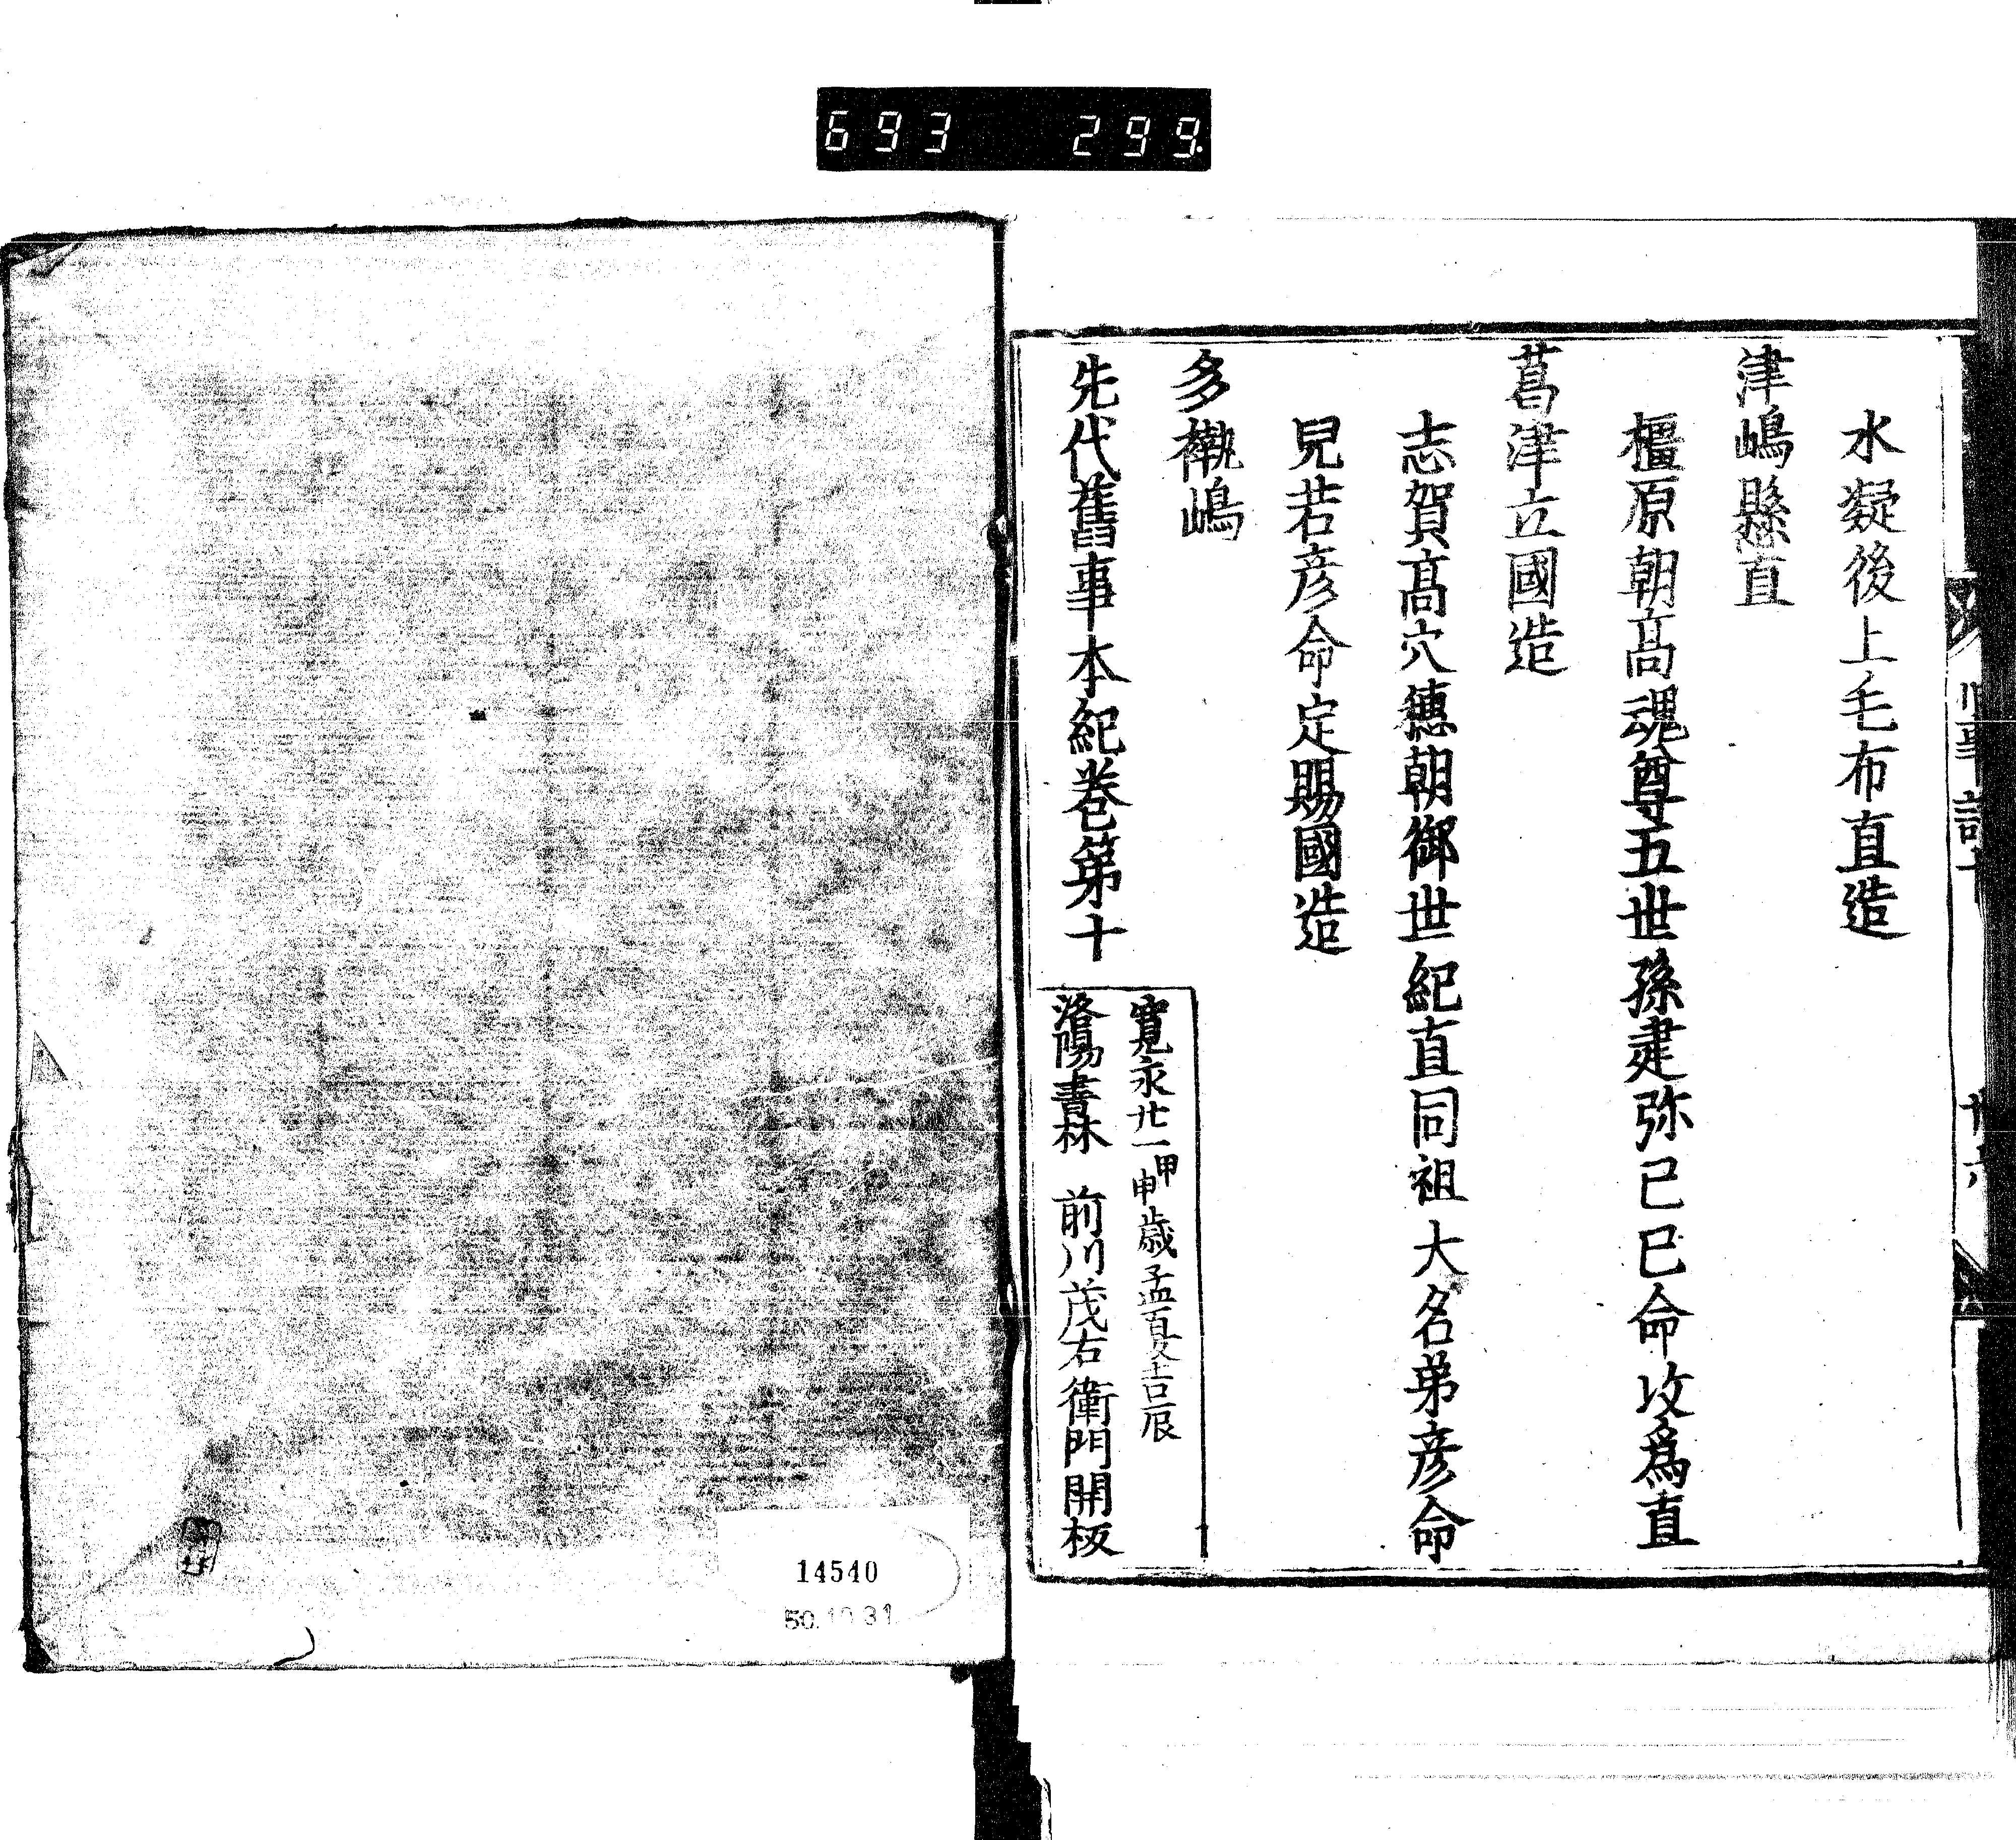 693 299
水凝後上毛布直造
津嶋縣直
橿原朝髙魂尊五世孫建弥己巳命攺爲直
葛津立國造
志賀髙穴穗朝御世紀直同祖大名弟彦命
兒若彦命定賜國造
多褹嶋
先代舊事本紀巻第十
寛永廿一甲申歳孟夏吉辰
洛陽書林 前川茂右衛門開板
14540
50.10.31